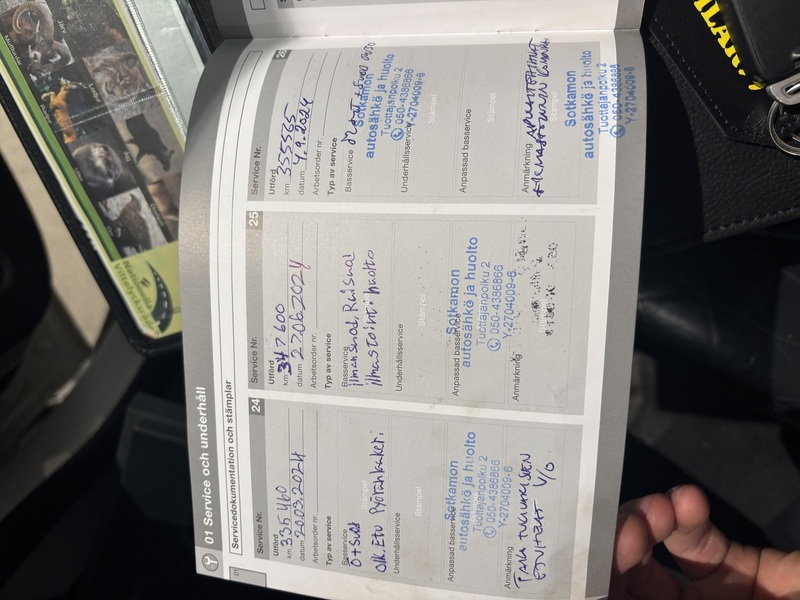 01 Service och underhåll
Servicedokumentation och stämplar
Service Nr. 24
Utförd
km 335460
datum 20.03.2024
Arbetsorder nr.
Typ av service
Basservice
Ö + Suod
Olk. Etu Pyöränlaakeri
Underhållsservice
Stämpel
Anpassad basservice
Sotkamon
autosähkö ja huolto
Tuottajanpolku 2
050-4386866
Y-2704009-6
Anmärkning
V/O
Service Nr. 25
Utförd
km 347600
datum 27.06.2024
Arbetsorder nr.
Typ av service
Basservice
Ilman suod, Raisuod
ilmastointi huolto
Underhållsservice
Stämpel
Anpassad basservice
Sotkamon
autosähkö ja huolto
Tuottajanpolku 2
050-4386866
Y-2704009-6
Anmärkning
Service Nr.
Utförd
km 355565
datum 4.9.2024
Arbetsorder nr.
Typ av service
Basservice
Sotkamon
autosähkö ja huolto
Tuottajanpolku 2
050-4386866
Y-2704009-6
Underhållsservice
Stämpel
Anpassad basservice
Stämpel
Anmärkning
Sotkamon
autosähkö ja huolto
Tuottajanpolku 2
050-4386866
Y-2704009-6